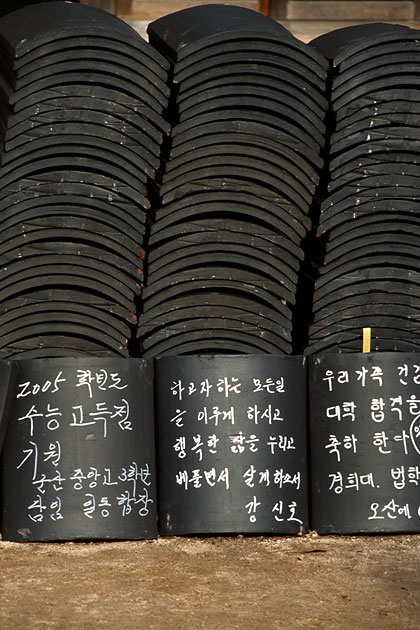 2005 학년도
수능 고득점
기원
울산 중앙고 3학년
담임 일동 합장
하고자 하는 모든일
을 이루게 하시고
행복한 삶을 누리고
베풀면서 살게하소서
강 신호
우리가족 건강
대학 합격을
축하 한다
경희대. 법학
오산에